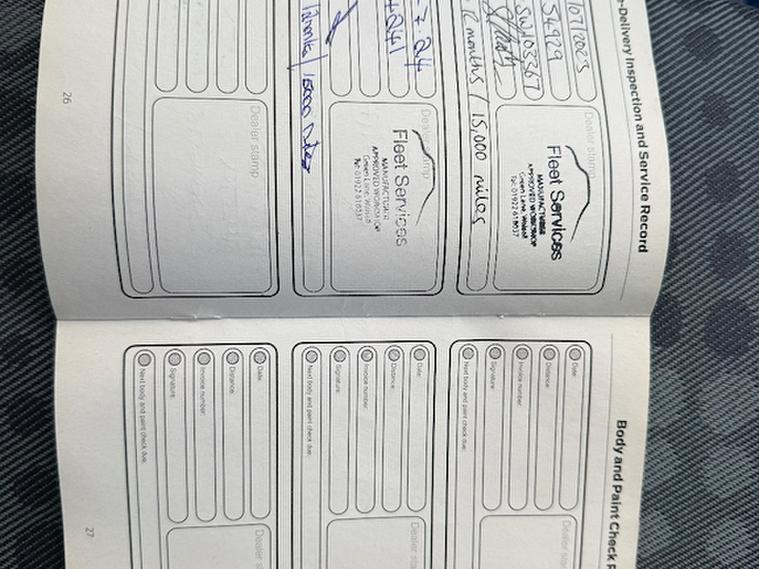 e-Delivery Inspection and Service Record
/07/2023
54929
12 months / 15,000 miles
Dealer stamp
Fleet Services
MANUFACTURER
APPROVED WORKSHOP
Green Lane, Walsall
Tel: 01922 616037
7-24
+241
12months / 15000 miles
Dealer stamp
Fleet Services
MANUFACTURER
APPROVED WORKSHOP
Green Lane, Walsall
Tel: 01922 616037
Dealer stamp
26
Body and Paint Check R
Date:
Distance:
Invoice number:
Signature:
Next body and paint check due:
Dealer star
Date:
Distance:
Invoice number:
Signature:
Next body and paint check due:
Dealer star
Date:
Distance:
Invoice number:
Signature:
Next body and paint check due:
Dealer st
27